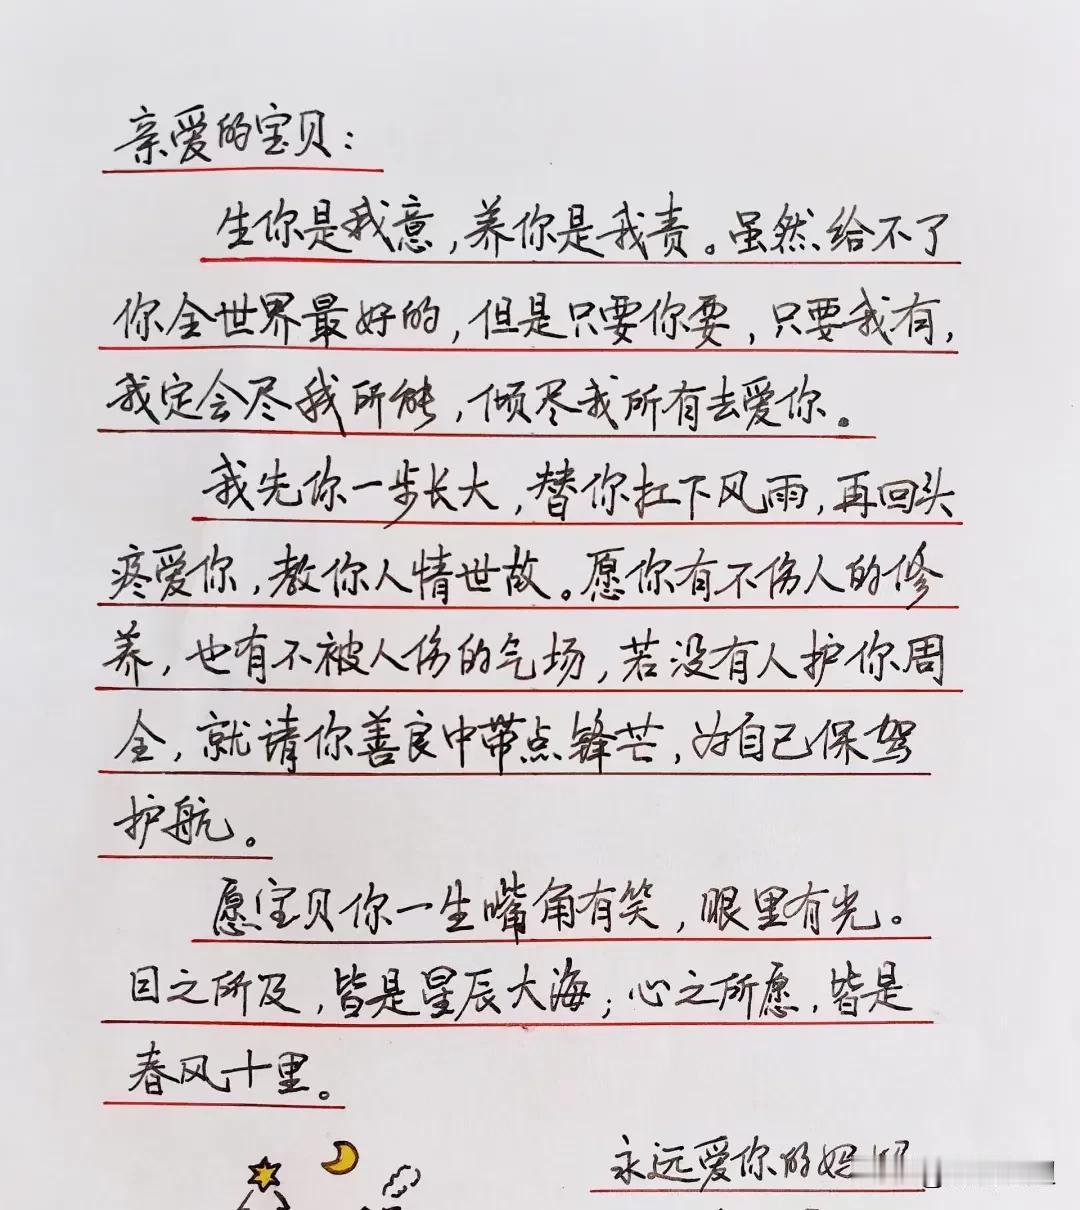 亲爱的宝贝：
生你是我意，养你是我责。虽然给不了
你全世界最好的，但是只要你要，只要我有，
我定会尽我所能，倾尽我所有去爱你。
我先你一步长大，替你扛下风雨，再回头
疼爱你，教你人情世故。愿你有不伤人的修
养，也有不被人伤的气场，若没有人护你周
全，就请你善良中带点锋芒，为自己保驾
护航。
愿宝贝你一生嘴角有笑，眼里有光。
目之所及，皆是星辰大海；心之所愿，皆是
春风十里。
永远爱你的妈